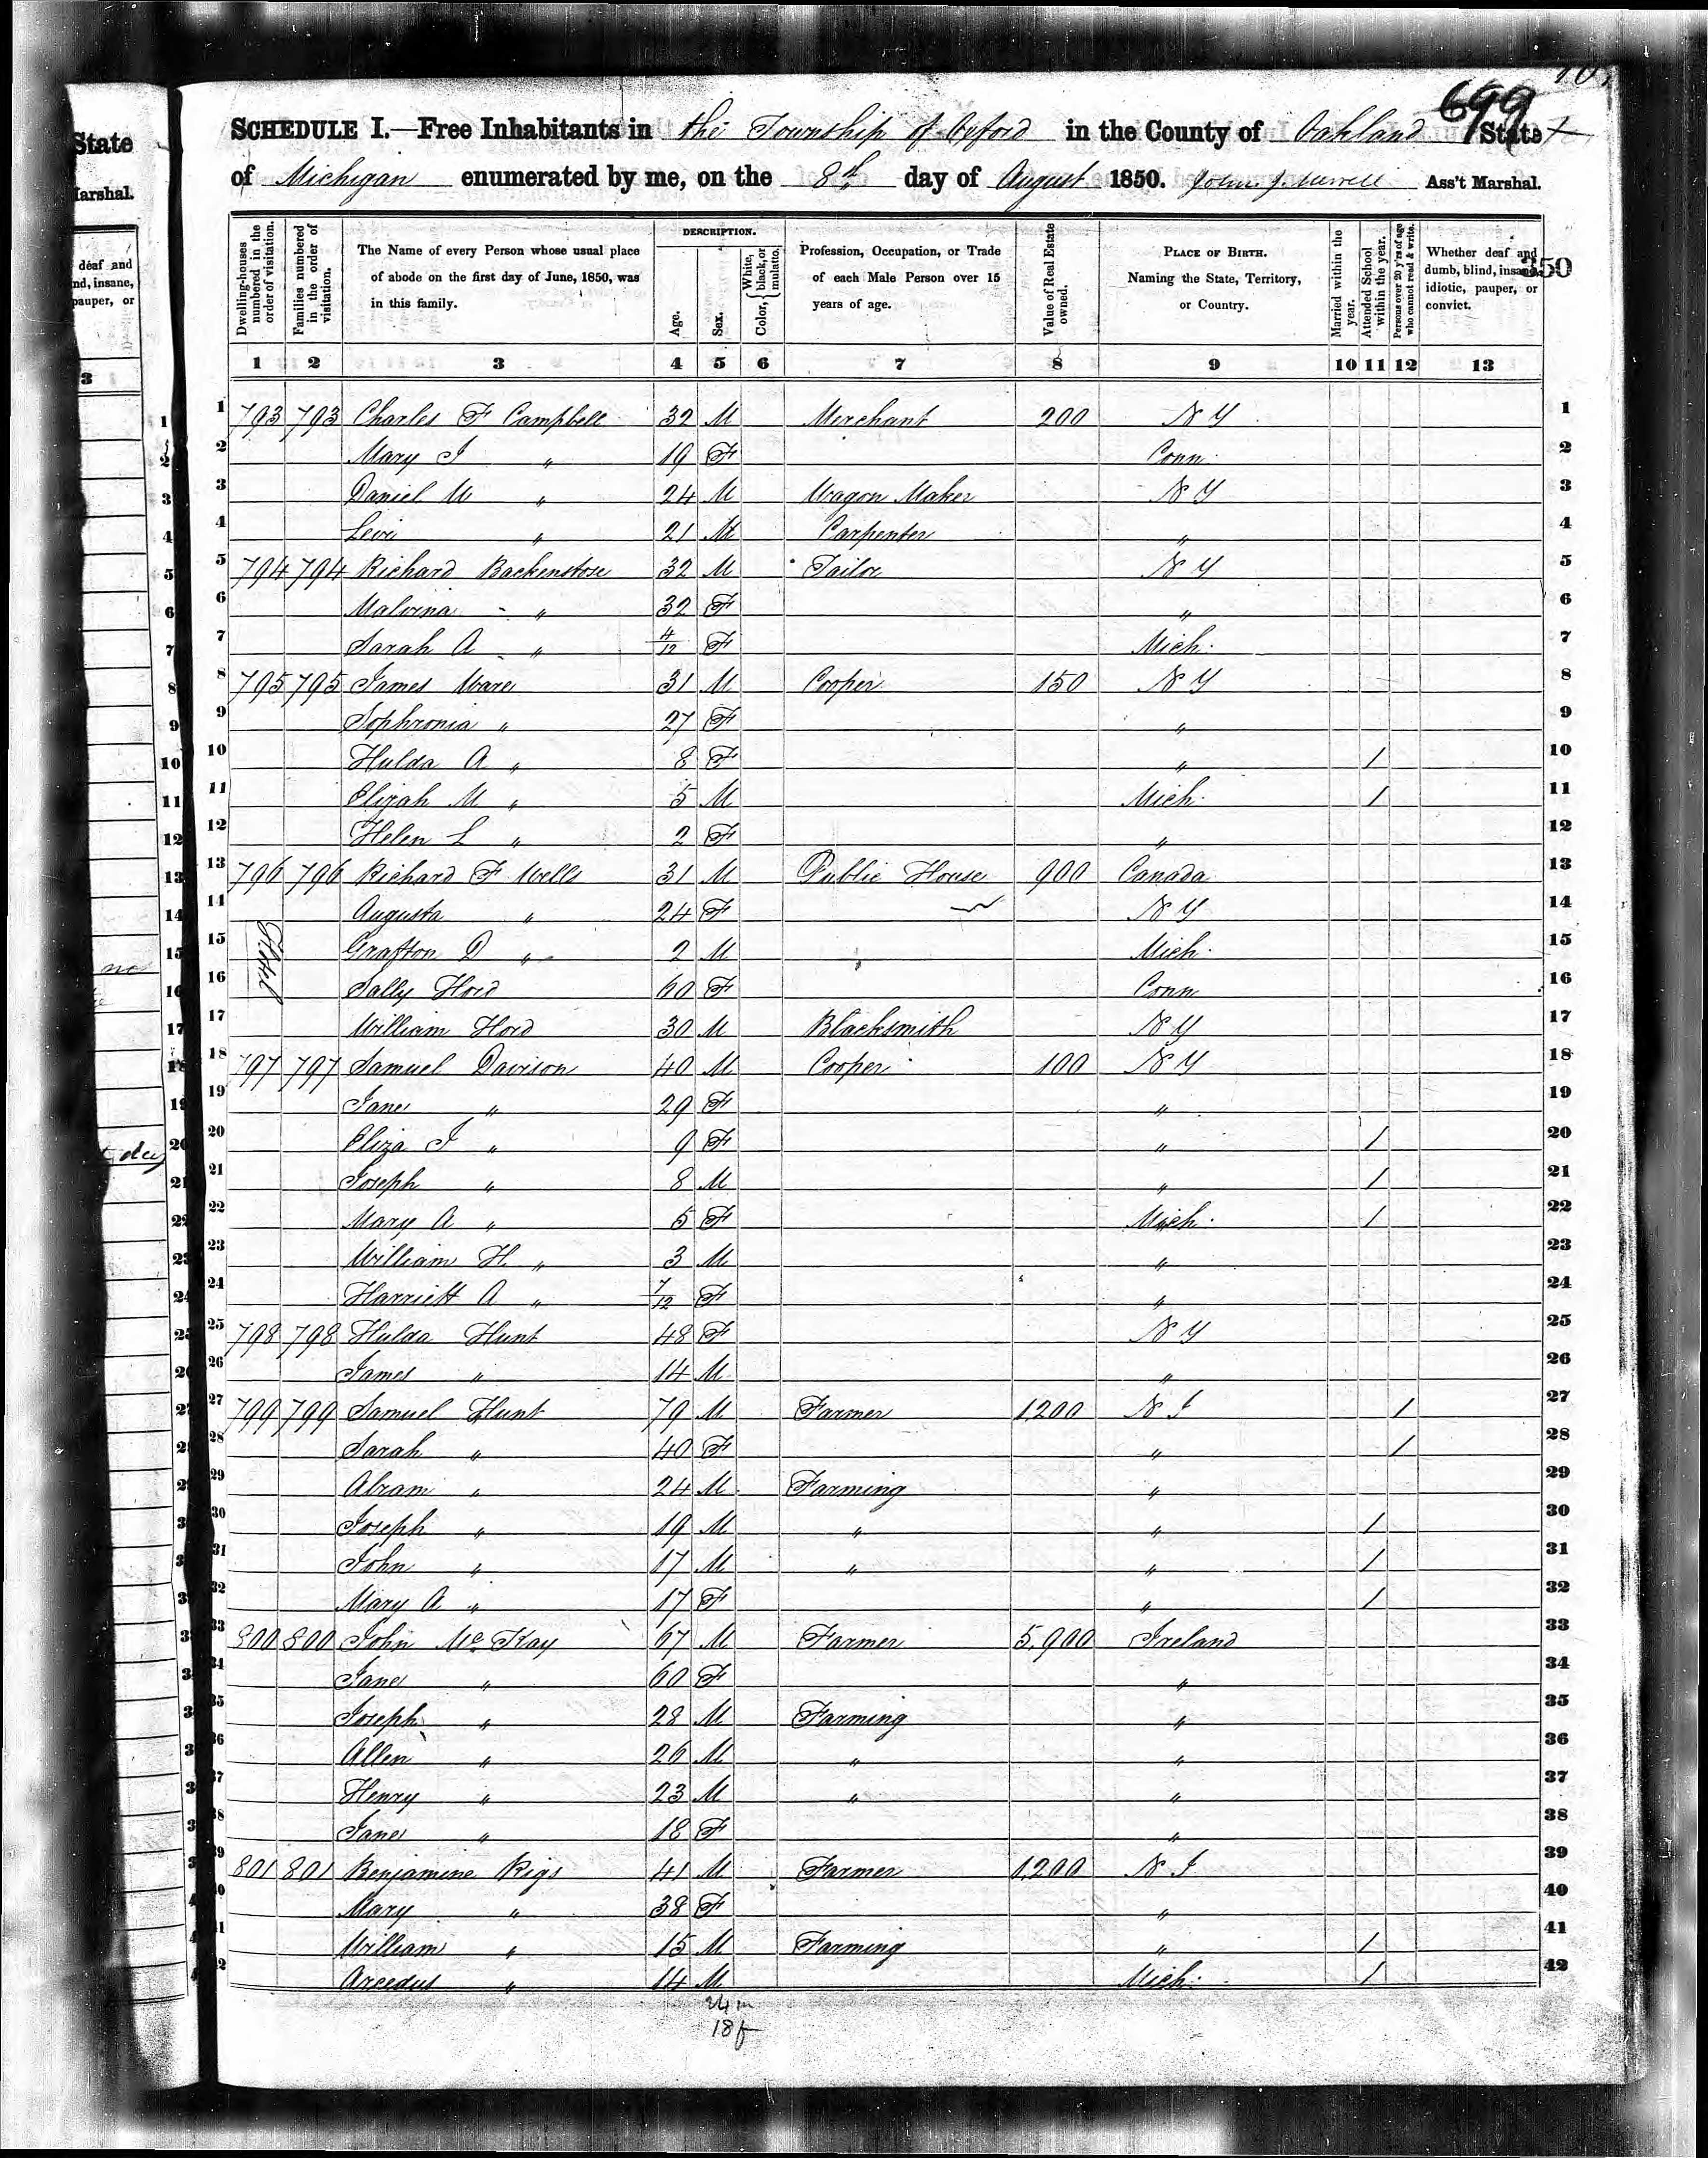 699
SCHEDULE I.—Free Inhabitants in the Township of Oxford in the County of Oakland State
of Michigan enumerated by me, on the 8th day of August 1850. John J. Ass't Marshal.
350
Dwelling-houses numbered in the order of visitation. Families numbered in the order of visitation. The Name of every Person whose usual place of abode on the first day of June, 1850, was in this family. DESCRIPTION. Age. Sex. Color, { White, black, or mulatto. Profession, Occupation, or Trade of each Male Person over 15 years of age. Value of Real Estate owned. PLACE OF BIRTH. Naming the State, Territory, or Country. Married within the year. Attended School within the year. Persons over 20 y'rs of age who cannot read & write. Whether deaf and dumb, blind, insane, idiotic, pauper, or convict.
1 2 3 4 5 6 7 8 9 10 11 12 13
1 793 793 Charles F Campbell 32 M Merchant 200 N Y 1
2 Mary J " 19 F Conn. 2
3 Daniel W " 24 M Wagon Maker N Y 3
4 Levi " 21 M Carpenter " 4
5 794 794 Richard Backenstose 32 M Tailor N Y 5
6 Malvina " 32 F " 6
7 Sarah A " 4/12 F Mich. 7
8 795 795 James Ware 31 M Cooper 150 N Y 8
9 Sophronia " 27 F " 9
10 Hulda A " 8 F " / 10
11 Elizah M " 5 M Mich. / 11
12 Helen L " 2 F " 12
13 796 796 Richard F Wells 31 M Public House 900 Canada 13
14 Augusta " 24 F N Y 14
15 Grafton D " 2 M Mich. 15
16 Sally Hoid 60 F Conn 16
17 William Hoid 30 M Blacksmith N Y 17
18 797 797 Samuel Davison 40 M Cooper 100 N Y 18
19 Jane " 29 F " 19
20 Eliza J " 9 F " / 20
21 Joseph " 8 M " / 21
22 Mary A " 5 F Mich. / 22
23 William H. " 3 M " 23
24 Harriett A " 7/12 F " 24
25 798 798 Hulda Hunt 48 F N Y 25
26 James " 14 M " 26
27 799 799 Samuel Hunt 79 M Farmer 1,200 N J / 27
28 Sarah " 40 F " / 28
29 Abram " 24 M Farming " 29
30 Joseph " 19 M " " / 30
31 John " 17 M " " / 31
32 Mary A " 17 F " / 32
33 800 800 John McKay 67 M Farmer 5,900 Ireland 33
34 Jane " 60 F " 34
35 Joseph " 28 M Farming " 35
36 Allen " 26 M " " 36
37 Henry " 23 M " " 37
38 Jane " 18 F " 38
39 801 801 Benjamine Rigs 41 M Farmer 1,200 N J 39
40 Mary " 38 F " 40
41 William " 15 M Farming " / 41
42 " 14 M Mich. / 42
24 m
18 f